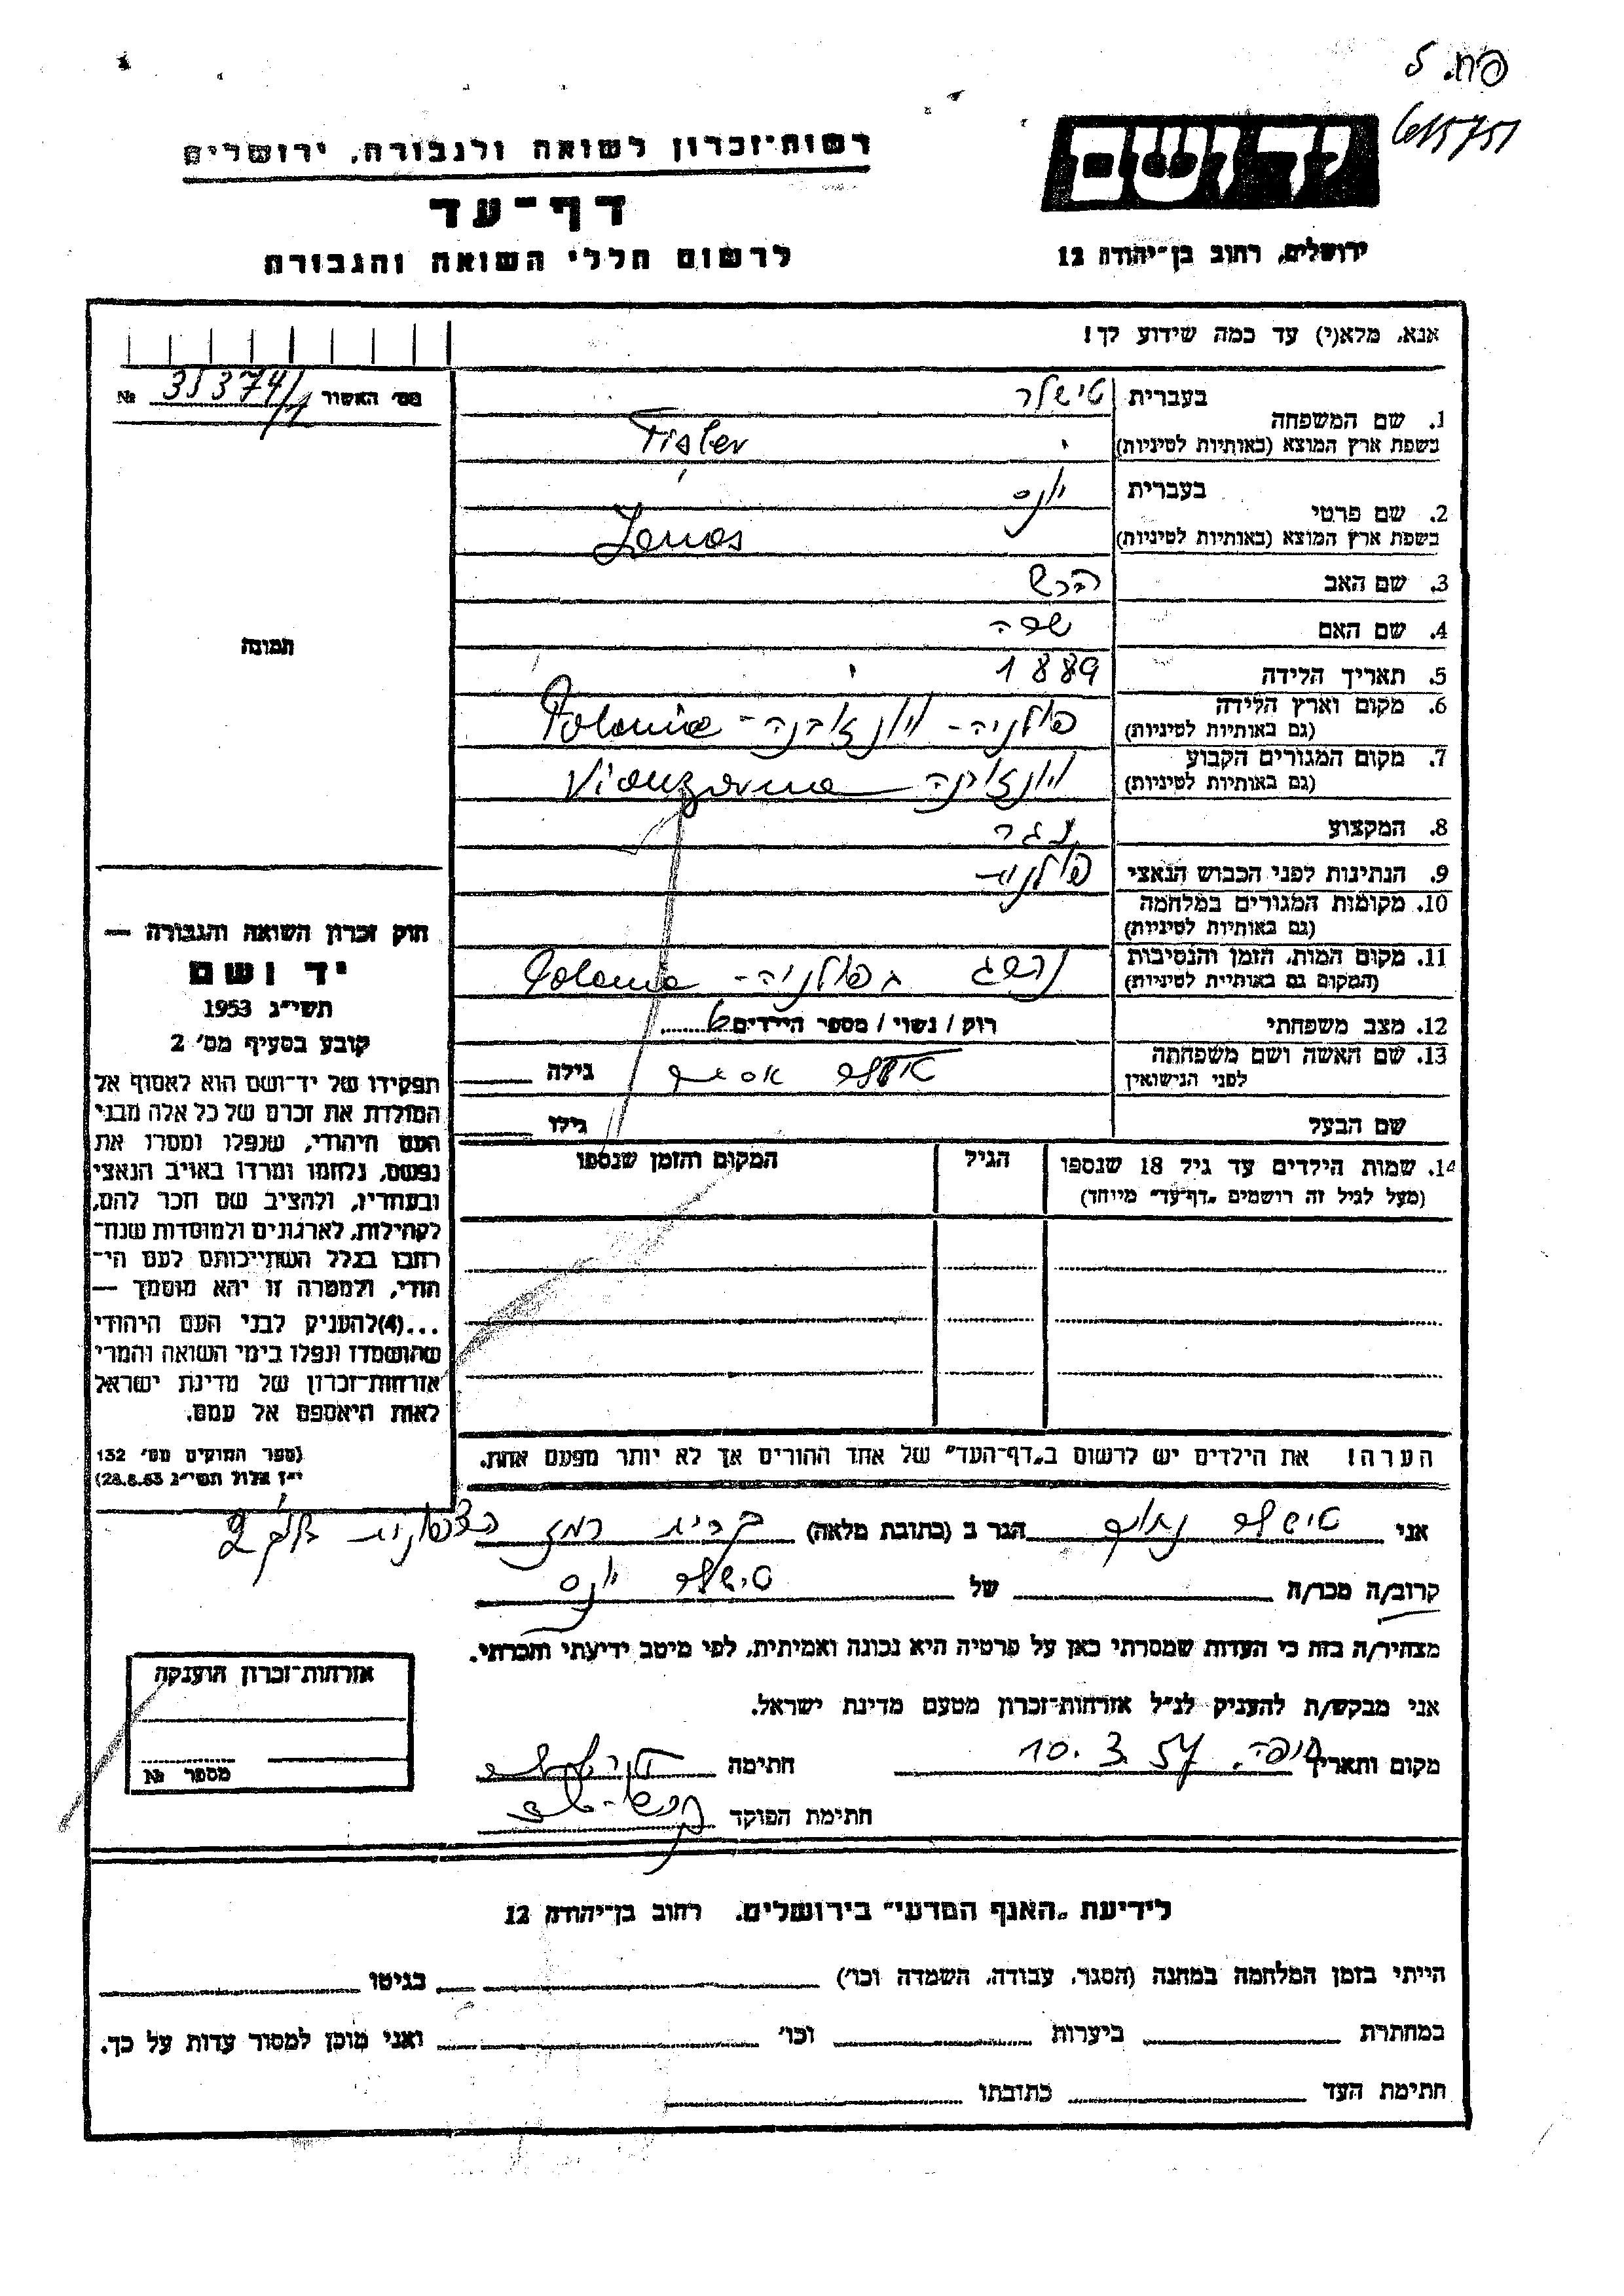 פח. 5
615751
יד ושם
ירושלים, רחוב בן־יהודה 12
רשות־זכרון לשואה ולגבורה, ירושלים
דף־עד
לרשום חללי השואה והגבורה
אנא, מלא(י) עד כמה שידוע לך!
מס׳ האשור 35374/1 №
1. שם המשפחה
בעברית טישלר
בשפת ארץ המוצא (באותיות לטיניות) Tisler
2. שם פרטי
בעברית יונס
בשפת ארץ המוצא (באותיות לטיניות) Jonas
3. שם האב הרש
4. שם האם שרה
5. תאריך הלידה 1889
6. מקום וארץ הלידה
(גם באותיות לטיניות) פולניה - Polonia -
7. מקום המגורים הקבוע
(גם באותיות לטיניות)
8. המקצוע נגר
9. הנתינות לפני הכבוש הנאצי פולנית
10. מקומות המגורים במלחמה
(גם באותיות לטיניות)
11. מקום המות, הזמן והנסיבות
(המקום גם באותיית לטיניות) נהרג בפולניה - Polonia
12. מצב משפחתי רוק / נשוי / מספר הילדים 6
13. שם האשה ושם משפחתה
לפני הנישואין אסתר גילה
שם הבעל גילו
14. שמות הילדים עד גיל 18 שנספו
(מעל לגיל זה רושמים „דף־עד״ מייוחד)
הגיל
המקום והזמן שנספו
הערה! את הילדים יש לרשום ב„דף־העד״ של אחד ההורים אך לא יותר מפעם אחת.
תמונה
חוק זכרון השואה והגבורה —
יד ושם
תשי״ג 1953
קובע בסעיף מס׳ 2
תפקידו של יד־ושם הוא לאסוף אל
המולדת את זכרם של כל אלה מבני
העם היהודי, שנפלו ומסרו את
נפשם, נלחמו ומרדו באויב הנאצי
ובעוזריו, ולהציב שם וזכר להם,
לקהילות, לארגונים ולמוסדות שנח־
רבו בגלל השתייכותם לעם הי־
הודי, ולמטרה זו יהא מוסמך —
...(4)להעניק לבני העם היהודי
שהושמדו ונפלו בימי השואה והמרי
אזרחות־זכרון של מדינת ישראל
לאות היאספם אל עמם.
(ספר החוקים מס׳ 132
י״ז אלול תשי״ג 28.8.53)
אני טישלר הגר ב (כתובת מלאה) קרית רמז
קרוב/ה מכר/ה של טישלר יונס
מצהיר/ה בזה כי העדות שמסרתי כאן על פרטיה היא נכונה ואמיתית, לפי מיטב ידיעתי והכרתי.
אני מבקש/ת להעניק לנ״ל אזרחות־זכרון מטעם מדינת ישראל.
מקום ותאריך חיפה. 10.3.57 חתימה
חתימת הפוקד
אזרחות־זכרון הוענקה
מספר №
לידיעת „האגף המדעי״ בירושלים, רחוב בן־יהודה 12
הייתי בזמן המלחמה במחנה (הסגר, עבודה, השמדה וכו׳) בגיטו
במחתרת ביערות וכו׳ ואני מוכן למסור עדות על כך.
חתימת העד כתובתו